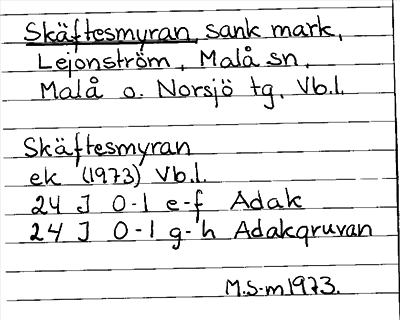 Skäftesmyran, sank mark,
Lejonström, Malå sn,
Malå o. Norsjö tg, Vb.l.
Skäftesmyran
ek (1973) Vb.l.
24 J 0-1 e-f Adak
24 J 0-1 g-h Adakgruvan
M.S-m 1973.